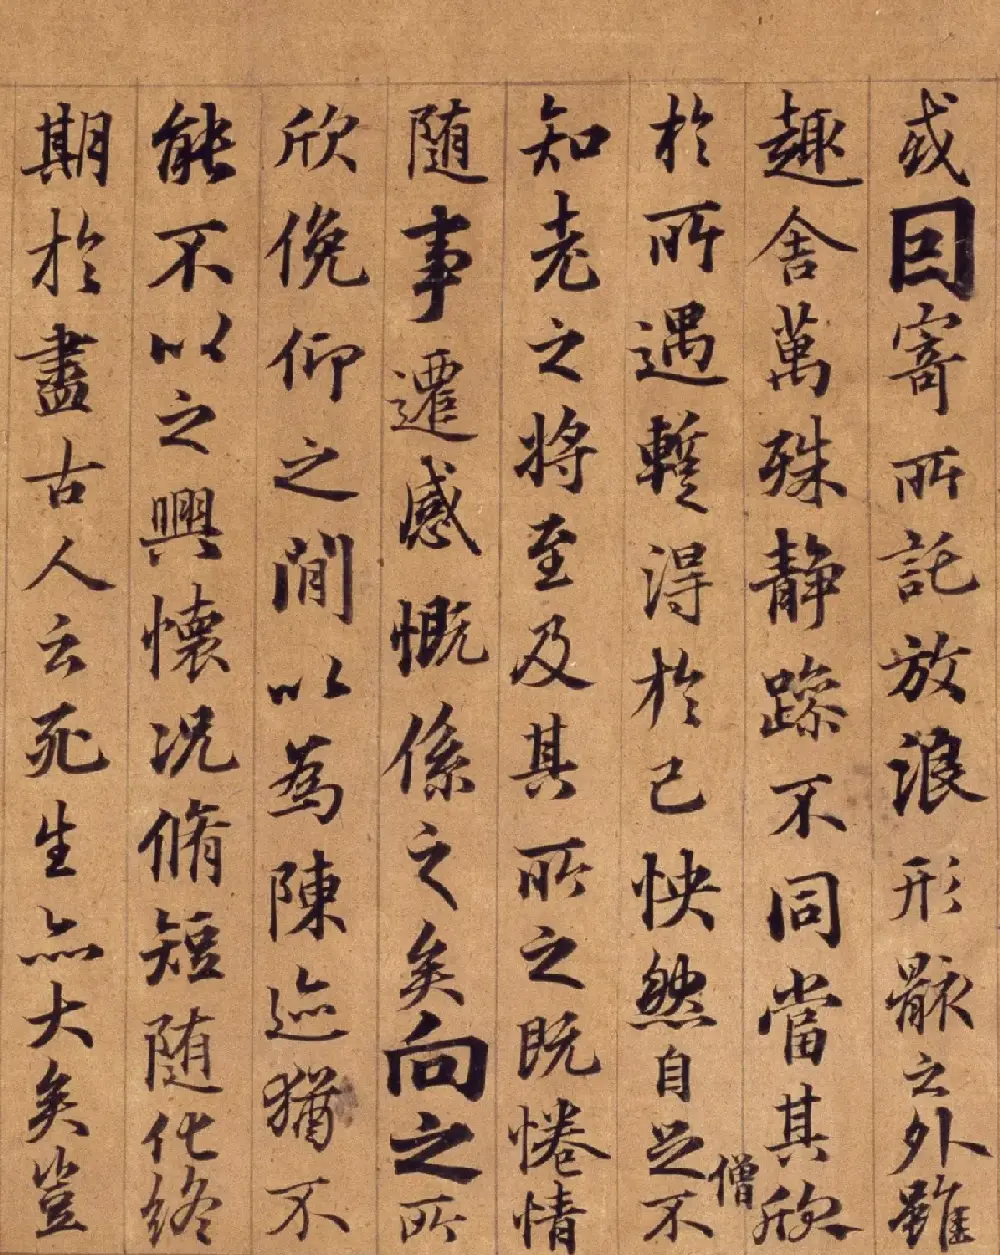 或因寄所託放浪形骸之外雖
趣舍萬殊静躁不同當其欣
僧
於所遇蹔得於己怏然自足不
知老之將至及其所之既惓情
随事遷感慨係之矣向之所
欣俛仰之閒以為陳迹猶不
能不以之興懷况脩短随化終
期於盡古人云死生亦大矣豈